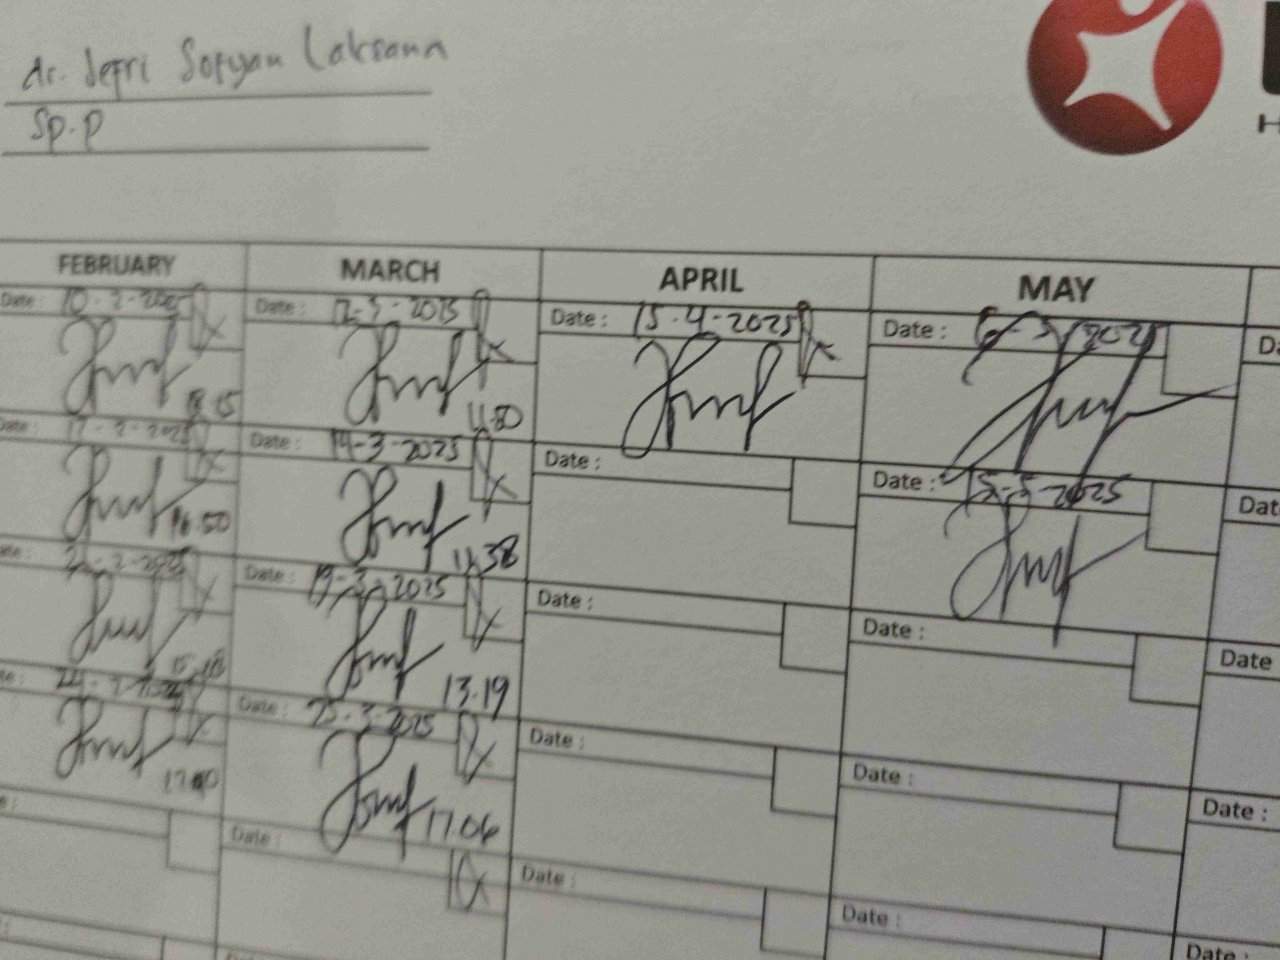 dr. Jefri Sofyan Laksana
Sp.P
H
FEBRUARY MARCH APRIL MAY
Date : 10-2-2025 Date : 12-3-2025 Date : 15-4-2025 Date : 6-5-2025 Da
18.15 11.50
Date : 17-2-2025 Date : 14-3-2025 Date : Date : 15-5-2025 Dat
16.50 11.38
Date : Date : 19-3-2025 Date : Date : Date
13.19
24-2-2025 Date : 25-3-2025 Date : Date : Date :
17.06
Date : Date : Date : Date :